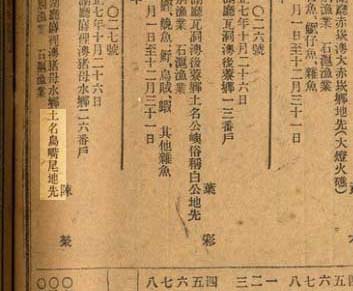 湖廳赤崁澳大赤崁鄉地先(大燈火礁)
漁業 石滬漁業
鰮 鰕仔魚 雜魚
月一日至十二月三十一日
〇二六號
正七年十月二十六日
湖廳瓦硐澳後寮鄉一三番戶
葉 彩
湖廳瓦硐澳後寮鄉土名公嶼俗稱白公地先
漁業 石滬漁業
鰮 鱙魚 鯛 烏賊 蝦 其他雜魚
月一日至十二月三十一日
〇二七號
正七年十月二十六日
湖廳嵵裡澳猪母水鄉二六番戶
陳 築
湖廳嵵裡澳猪母水鄉土名烏嘴尾地先
漁業 石滬漁業
四 三 二 一
八 七 六 五 四
八 七 六 五 四
〇〇〇